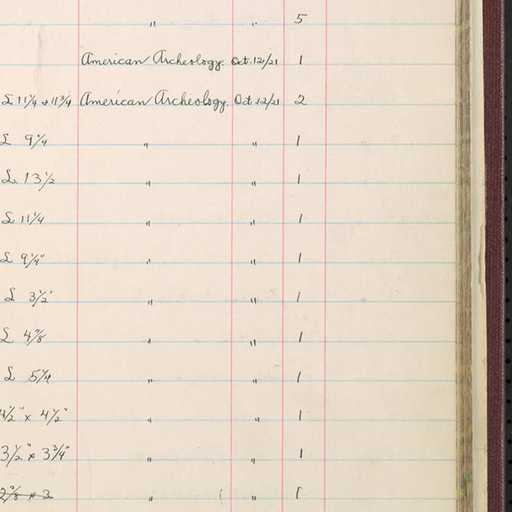 " " 5
American Archeology. Oct. 12/21 1
L 11 1/4 & 11 3/4 American Archeology. Oct. 12/21 2
L 9 1/4 " " 1
L 13 1/2 " " 1
L 11 1/4 " " 1
L 9 1/4" " " 1
L 3 1/2" " " 1
L " " 1
L 5 1/4 " " 1
4 1/2" x 4 1/2" " " 1
3 1/2" x 3 3/4" " " 1
x 3 " " 1